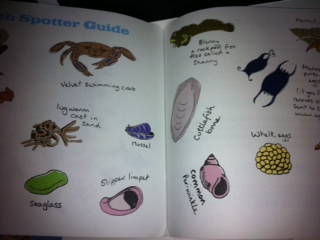 Spotter Guide
Velvet Swimming Crab
lugworm
cast in
Sand
Mussel
Seaglass
Slipper limpet
Blenny
a rockpool fish
also called a
Shanny
Cuttlefish
bone
Whelk eggs
Common
Periwinkle